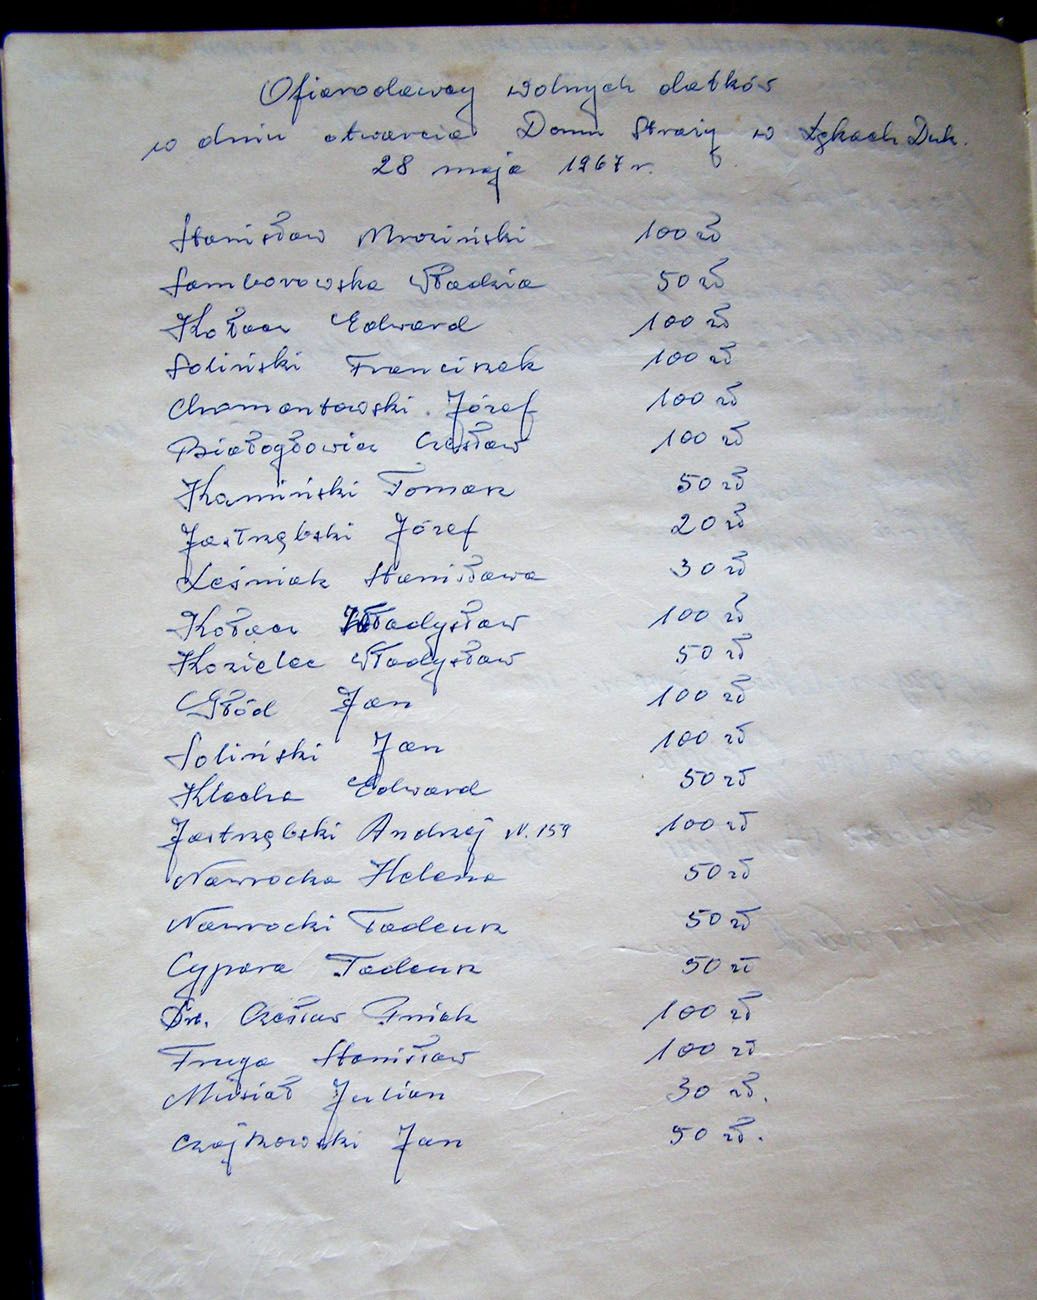 Ofiarodawcy wolnych datków
w dniu otwarcia Domu Straży w Łękach Duk.
28 maja 1967 r.
Stanisław Mroziński 100 zł
Samborowska Władzia 50 zł
Kołacz Edward 100 zł
Soliński Franciszek 100 zł
Chamantowski Józef 100 zł
Białogłowicz Czesław 100 zł
Kamiński Tomasz 50 zł
Jastrzębski Józef 20 zł
Leśniak Stanisława 30 zł
Kołacz Władysław 100 zł
Kozielec Władysław 50 zł
Głód Jan 100 zł
Soliński Jan 100 zł
Klecha Edward 50 zł
Jastrzębski Andrzej N. 159 100 zł
Nawrocka Helena 50 zł
Nawrocki Tadeusz 50 zł
Cypara Tadeusz 50 zł
Dr. Czesław Pniak 100 zł
Fruga Stanisław 100 zł
Musiał Julian 30 zł.
Czajkowski Jan 50 zł.